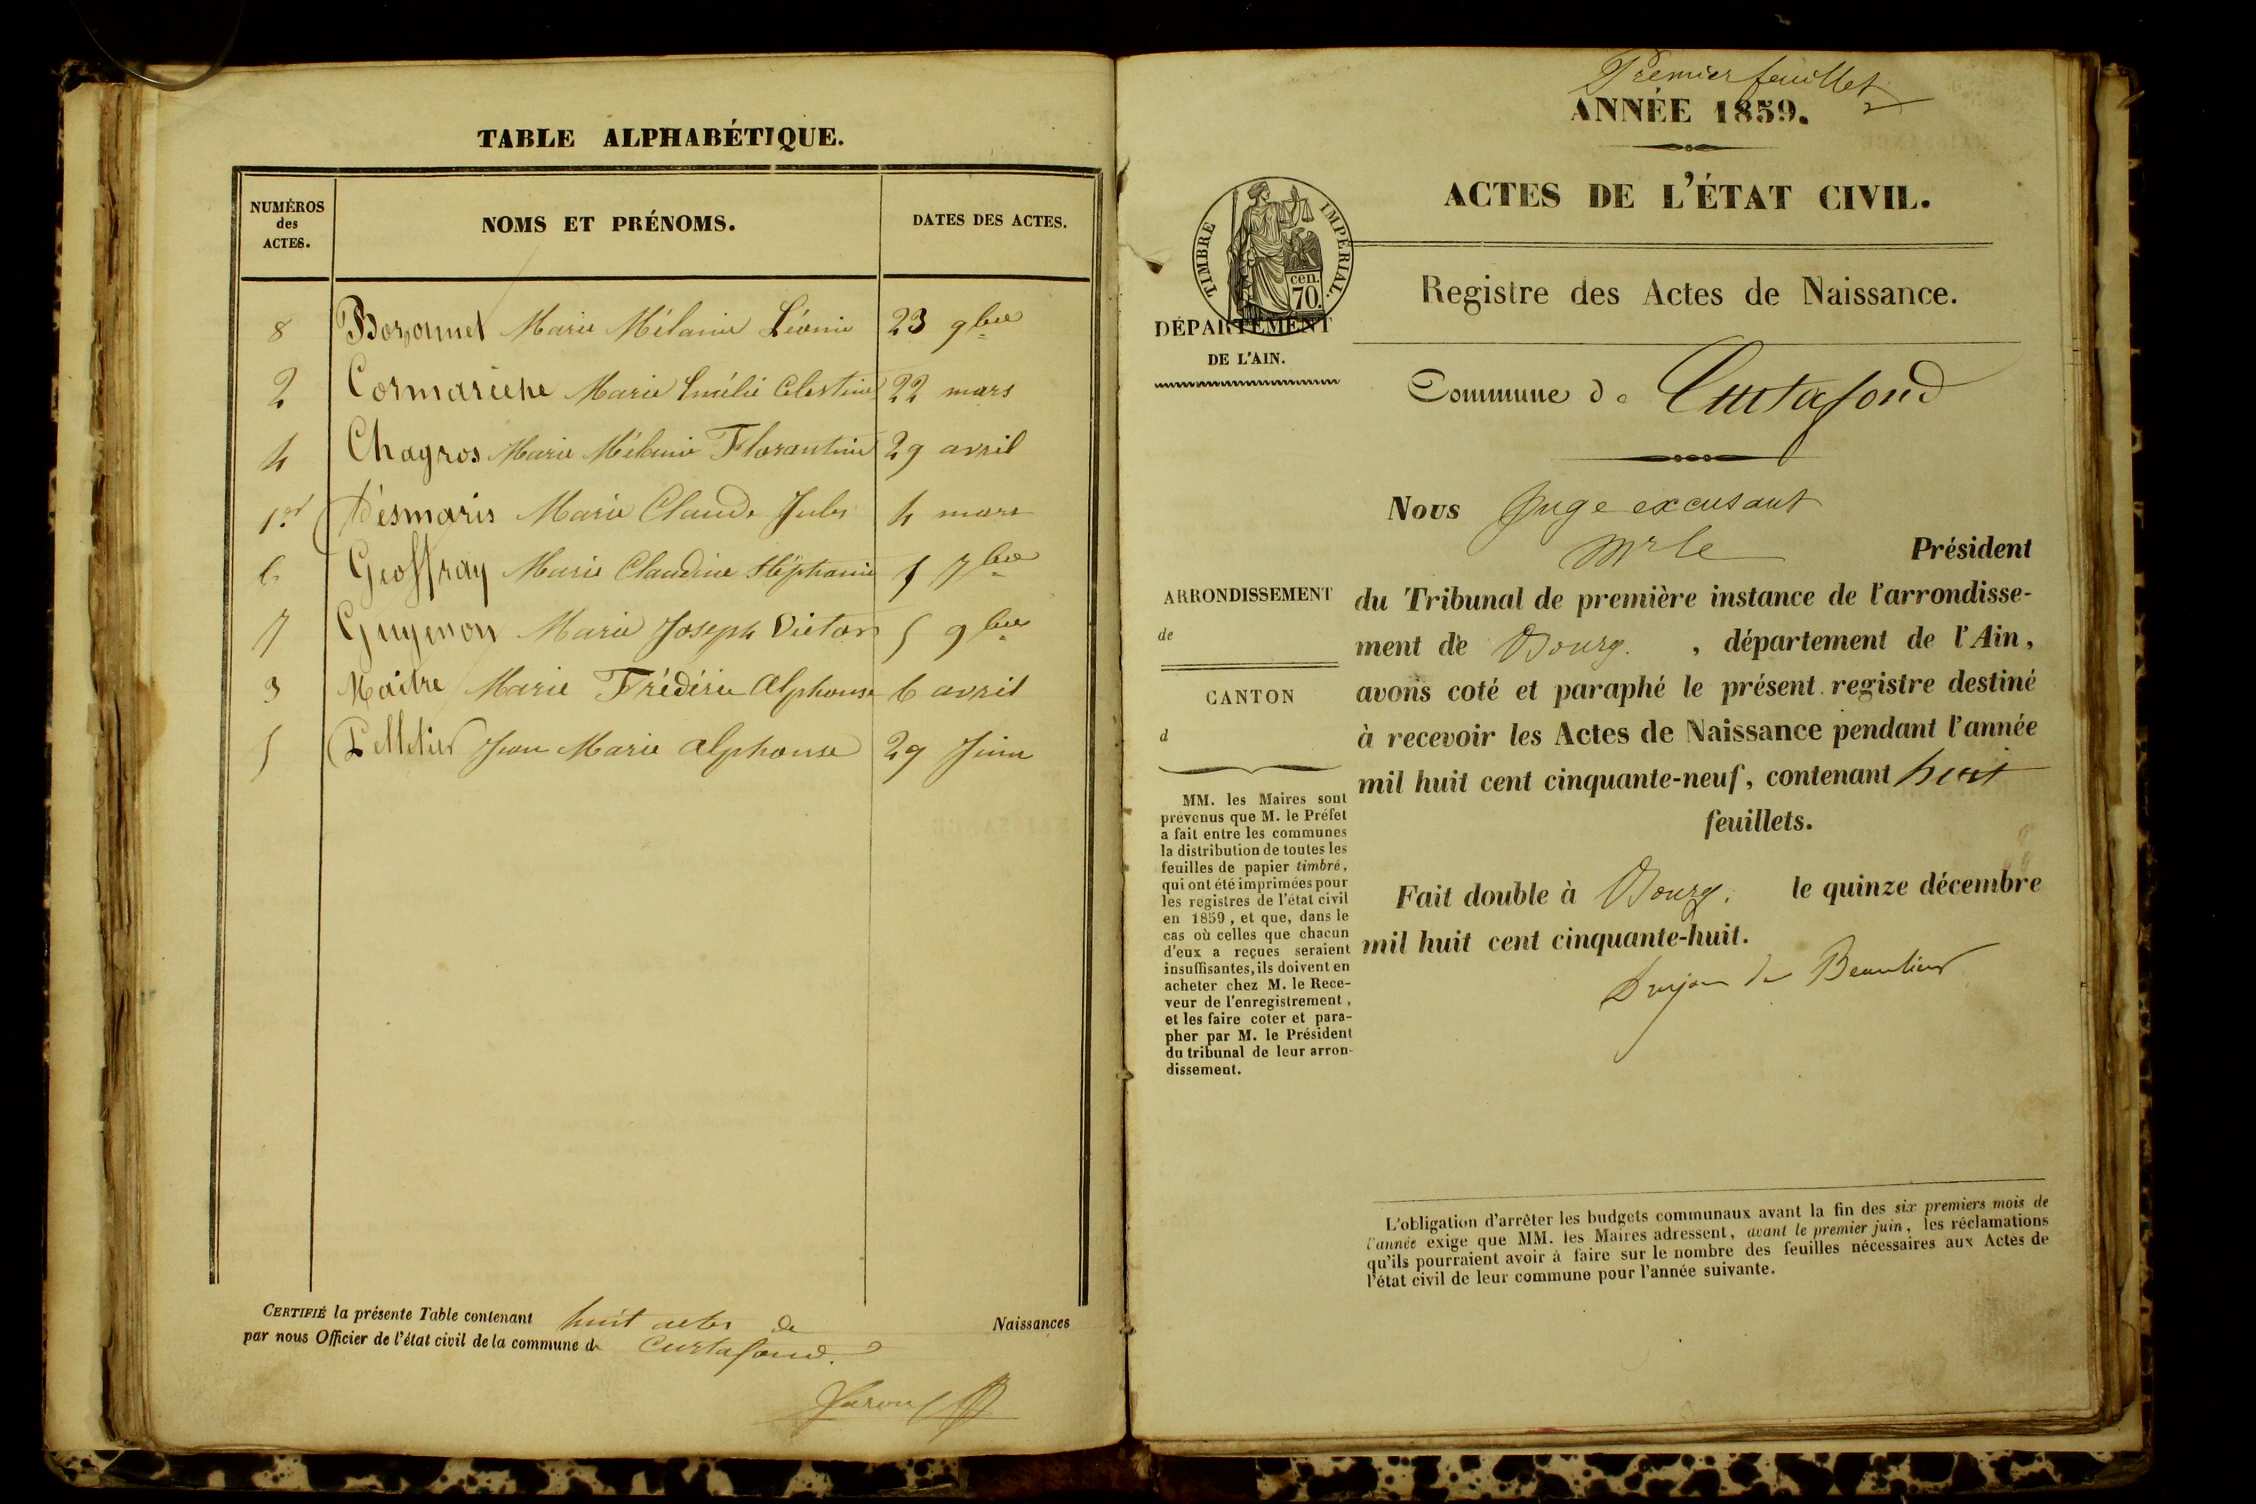 TABLE ALPHABÉTIQUE.
NUMÉROS
des
ACTES.
NOMS ET PRÉNOMS.
DATES DES ACTES.
8 Bozonnet Marie Mélanie Léonie 23 9bre
2 Cormarèche Marie Emélie Célestine 22 mars
4 Chagros Marie Mélanie Florantine 29 avril
1er Désmaris Marie Claude Jules 4 mars
6 Geoffray Marie Claudine Stéphanie 5 7bre
7 Guyenon Marie Joseph Victor 5 9bre
3 Maître Marie Frédéric Alphonse 6 avril
5 Pelletier Jean Marie Alphonse 29 Juin
CERTIFIÉ la présente Table contenant huit actes de Naissances
par nous Officier de l'état civil de la commune de Curtafond.
Premier feuillet
ANNÉE 1859.
ACTES DE L'ÉTAT CIVIL.
TIMBRE IMPÉRIAL.
cen.
70.
Registre des Actes de Naissance.
DÉPARTEMENT
DE L'AIN.
Commune de Curtafond
Nous Juge excusant
Mr le Président
ARRONDISSEMENT
de
CANTON
d
du Tribunal de première instance de l'arrondisse-
ment de Bourg. , département de l'Ain,
avons coté et paraphé le présent registre destiné
à recevoir les Actes de Naissance pendant l'année
mil huit cent cinquante-neuf, contenant huit
feuillets.
Fait double à Bourg. le quinze décembre
mil huit cent cinquante-huit.
de Beaulieu
MM. les Maires sont
prévenus que M. le Préfet
a fait entre les communes
la distribution de toutes les
feuilles de papier timbré,
qui ont été imprimées pour
les registres de l'état civil
en 1859, et que, dans le
cas où celles que chacun
d'eux a reçues seraient
insuffisantes, ils doivent en
acheter chez M. le Rece-
veur de l'enregistrement,
et les faire coter et para-
pher par M. le Président
du tribunal de leur arron-
dissement.
L'obligation d'arrêter les budgets communaux avant la fin des six premiers mois de
l'année exige que MM. les Maires adressent, avant le premier juin, les réclamations
qu'ils pourraient avoir à faire sur le nombre des feuilles nécessaires aux Actes de
l'état civil de leur commune pour l'année suivante.